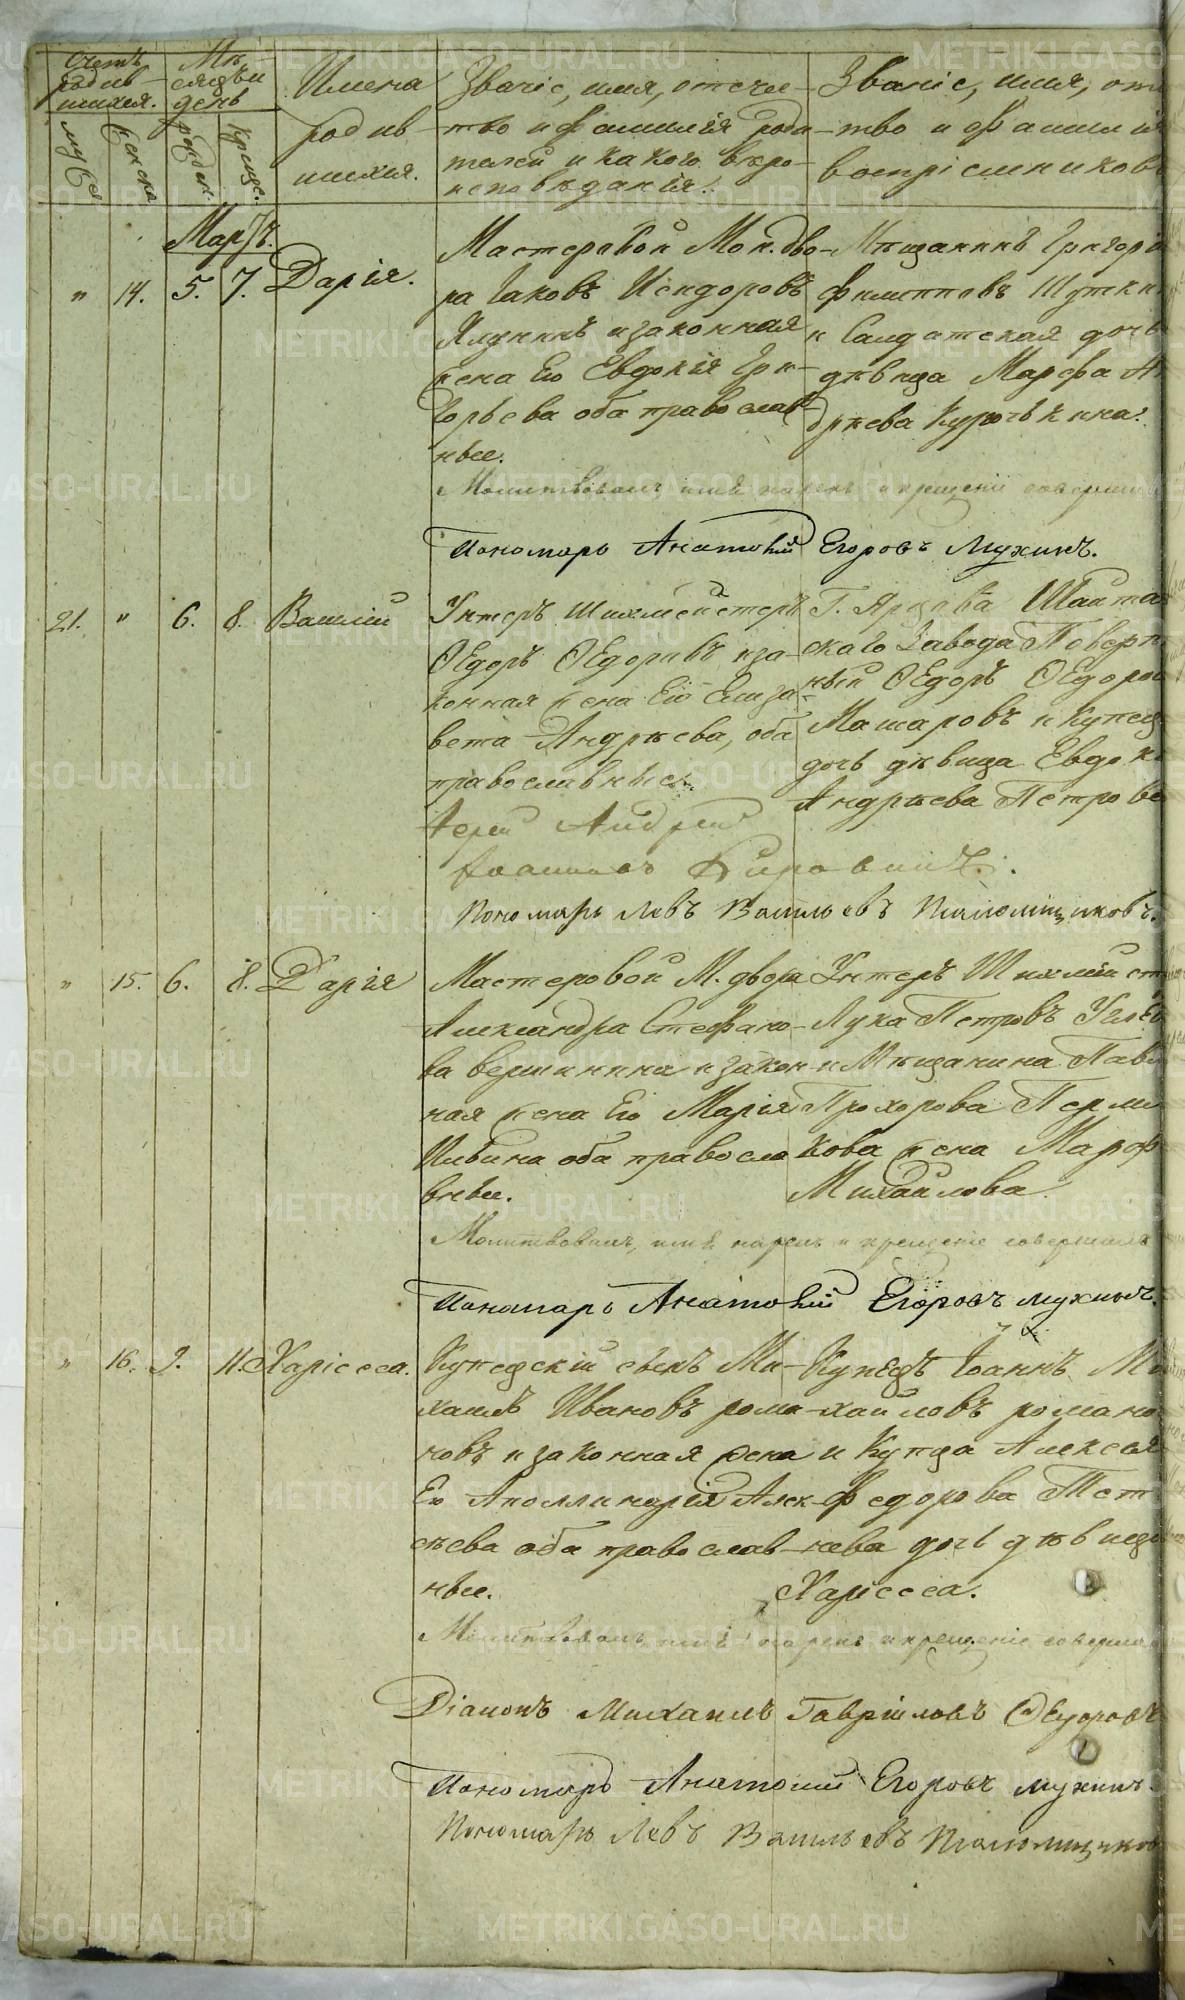 Счетъ родив-шихся.
Мѣ-сяцъ и день
Имена родив-шихся.
Званіе, имя, отече-
ство и фамилія роди-
телей и какого вѣро-
исповѣданія.
Званіе, имя, оте
-тво и фамилія
воспріемниковъ
мужеска
женска
рожден.
креще.
Мартъ.
" 14. 5. 7. Дарія.
Мастеровой Мон. дво-
ра Іаковъ Исидоровъ
и законная
жена Его Евдокія Гри-
горьева оба православ-
ные.
Мѣщанинъ Григорій
Филипповъ
и Салдатская дочь
дѣвица Марфа Ан
дрѣева Курочькина.
Молитвовалъ имя нарекъ и крещеніе совершилъ
Пономарь Анатолій Егоровъ Мухинъ.
21. " 6. 8. Василій
Унтеръ Шихмейстеръ
Ѳедоръ Ѳедоровъ и за-
конная жена Его Елиза-
вета Андрѣева, оба
православные
Г. Ярцова Шайтан
скаго Завода Повѣрен
ный Ѳедоръ Ѳедоров
Машаровъ и Купец
дочь дѣвица Евдоки
Андрѣева Петрова
Іерей Андрей
Іоанновъ
Пономарь Левъ Васильевъ
" 15. 6. 8. Дарія
Мастеровой М. двора
Александра Стефано-
ва Вершинина и закон-
ная жена Его Марія
Ильина оба правосла
вные.
Унтеръ Шихмейст
Лука Петровъ
и Мѣщанина Павл
Прохорова Перми
кова жена Марф
Михайлова
Молитвовалъ, имя нарекъ и крещеніе совершилъ
Пономарь Анатолій Егоровъ Мухинъ.
" 16. 9. 11. Харіесса.
Купецскій сынъ Ми-
хаилъ Ивановъ Рома-
новъ и законная жена
Ея Аполлинарія Алек-
сѣева оба православ-
ные.
Купецъ Іоаннъ Ми
хайловъ Романо
и Купца Алексѣя
Федорова
дочь дѣвица
Харіесса.
Молитвовалъ имя нарекъ и крещеніе совершилъ
Діаконъ Михаилъ Гавріиловъ Ѳедоровъ
Пономарь Анатолій Егоровъ Мухинъ.
Пономарь Левъ Васильевъ
METRIKI.GASO-URAL.RU